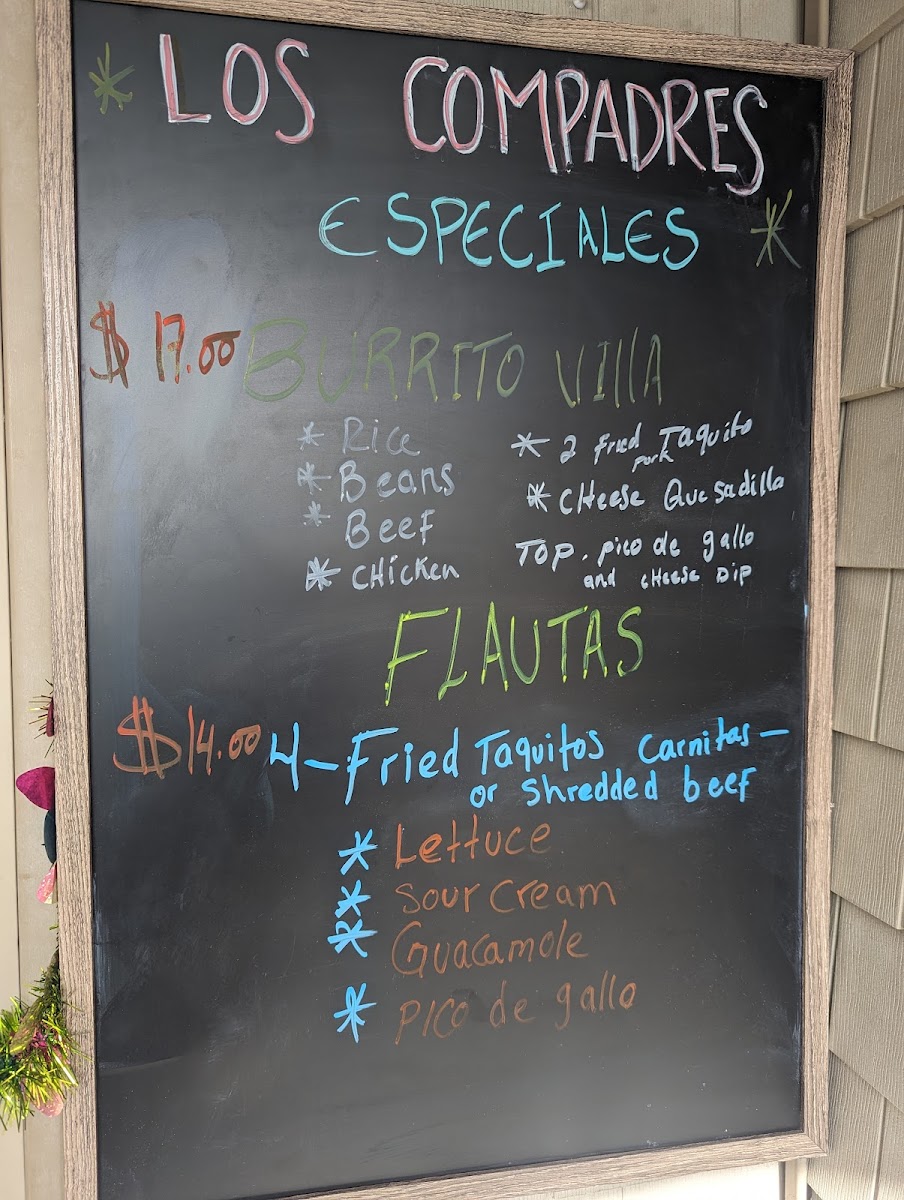 * LOS COMPADRES
ESPECIALES *
$17.00 BURRITO VIllA
* Rice
* Beans
* Beef
* CHicken
* 2 fried Taquito
pork
* CHeese Quesadilla
TOP. pico de gallo
and cHeese DIP
FLAUTAS
$14.00 4-Fried Taquitos Carnitas-
or Shredded beef
* Lettuce
* Sour Cream
* Guacamole
* PICO de gallo